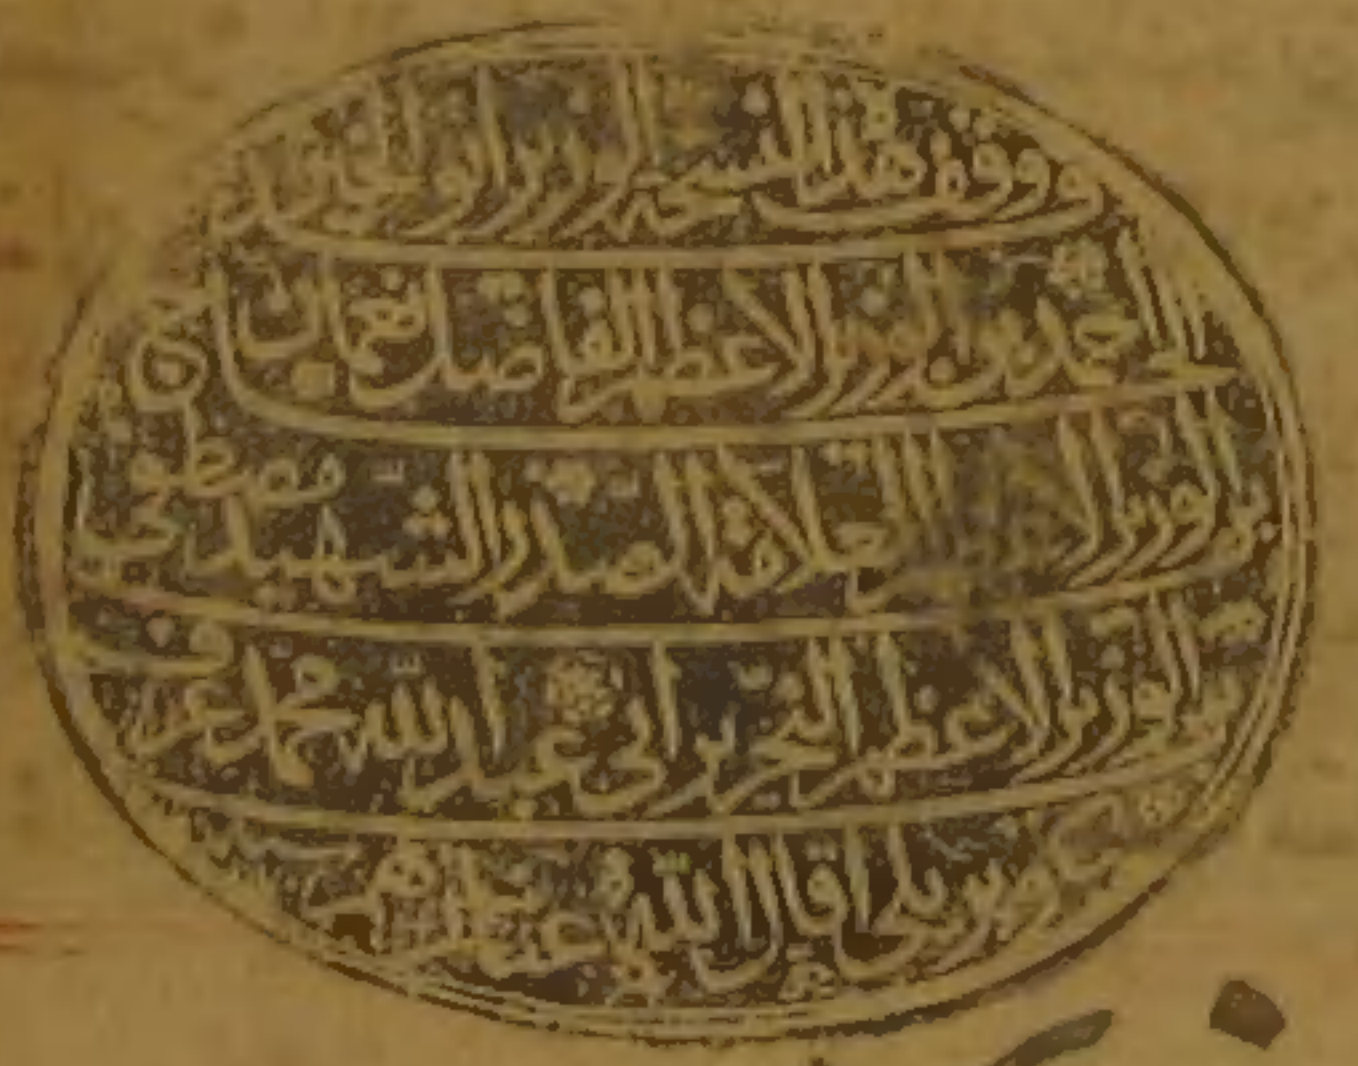 و وقف هذا النسخة الوزير ابو الخير
الحاج احمد بن الوزير الاعظم الفاضل نعمان بن
الوزير الا العلامة الصدر الشهيد مصطفى
بن الوزير الاعظم النحرير ابى عبد الله محمد عرف
بكوپريلى اقال الله عثارهم